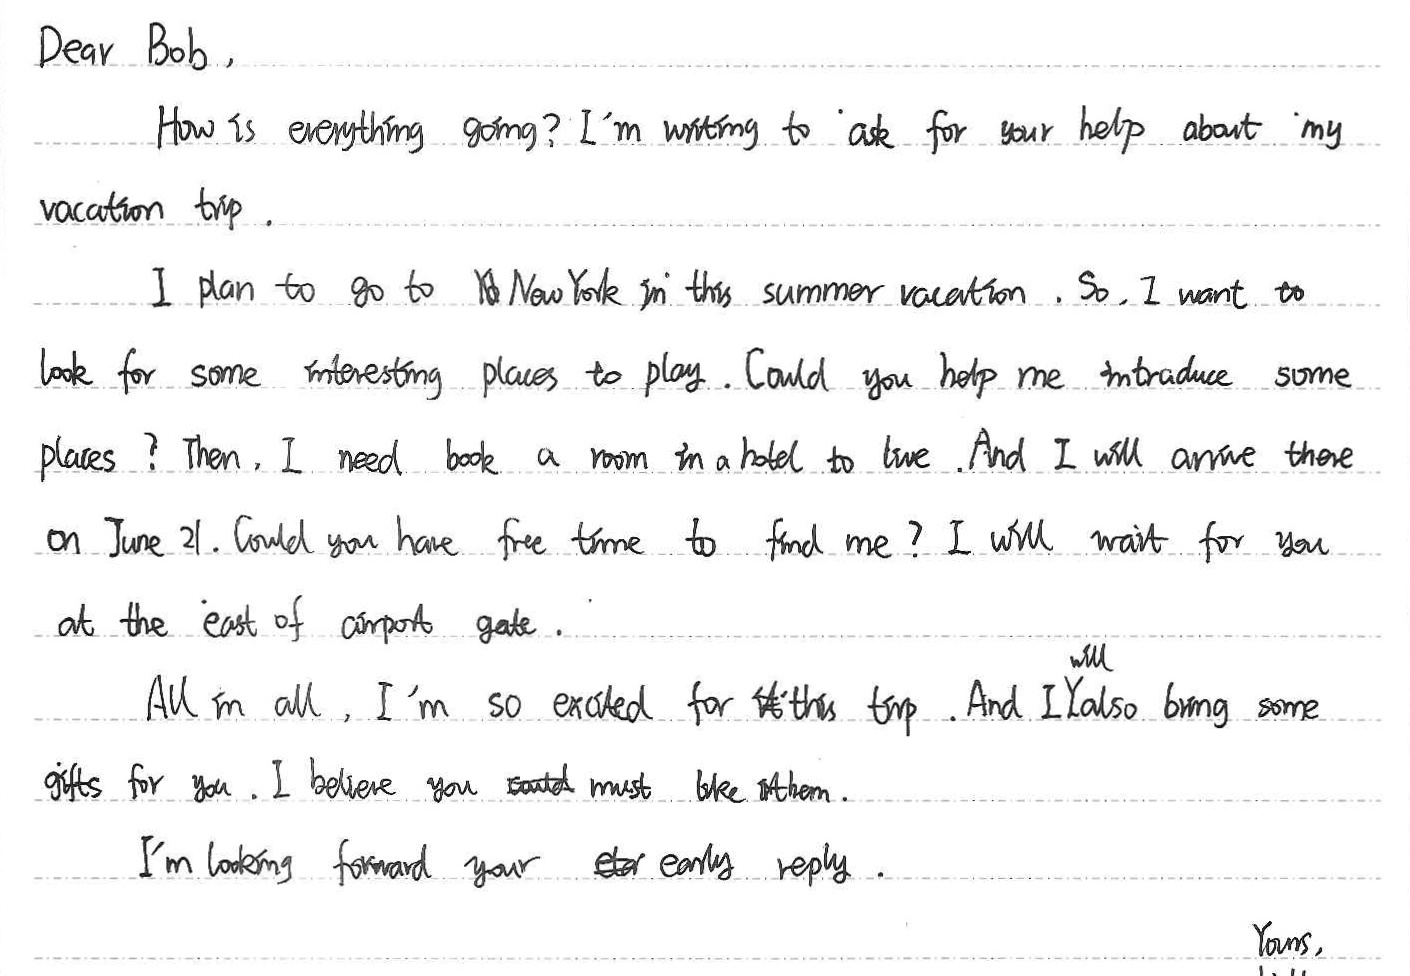 Dear Bob,
How is everything going? I'm writing to ask for your help about my
vacation trip.
I plan to go to New York in this summer vacation. So, I want to
look for some interesting places to play. Could you help me intraduce some
places? Then, I need book a room in a hotel to live. And I will arrive there
on June 21. Could you have free time to find me? I will wait for you
at the east of airport gate.
will
All in all, I'm so excited for this trip. And I also bring some
gifts for you. I believe you must like them.
I'm looking forward your early reply.
Yours,